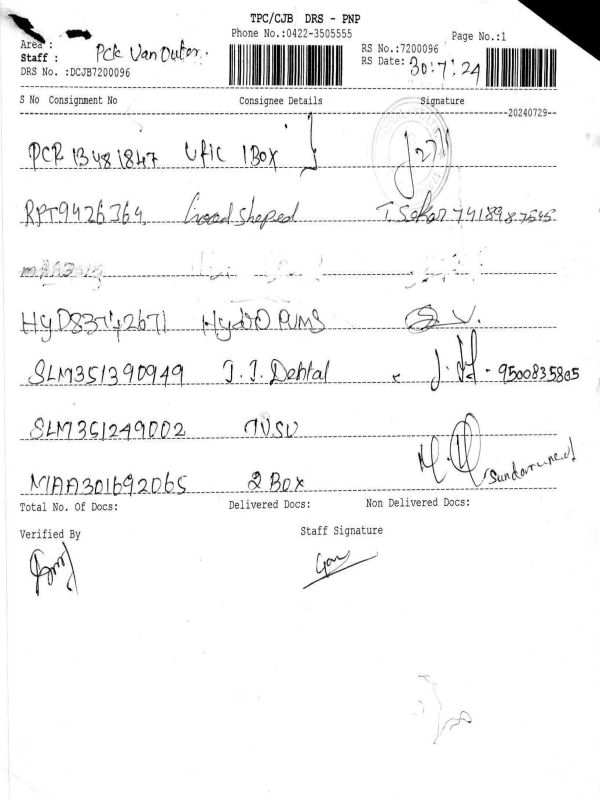 TPC/CJB DRS - PNP
Phone No.:0422-3505555
Page No.:1
Area :
Staff : Pck Van Outer.
RS No.:7200096
DRS No. :DCJB7200096
RS Date: 30.7.24
S No Consignment No Consignee Details Signature
20240729
PCR 13481847 1 Box
RPT9426764 Good shaped T. Sekar 7418987545
HYD83742671 Hydro Pums V.
SLM351390949 J.J. Dental 9500835805
SLM351249002
MAA301692065 2 Box
Total No. Of Docs: Delivered Docs: Non Delivered Docs:
Verified By Staff Signature